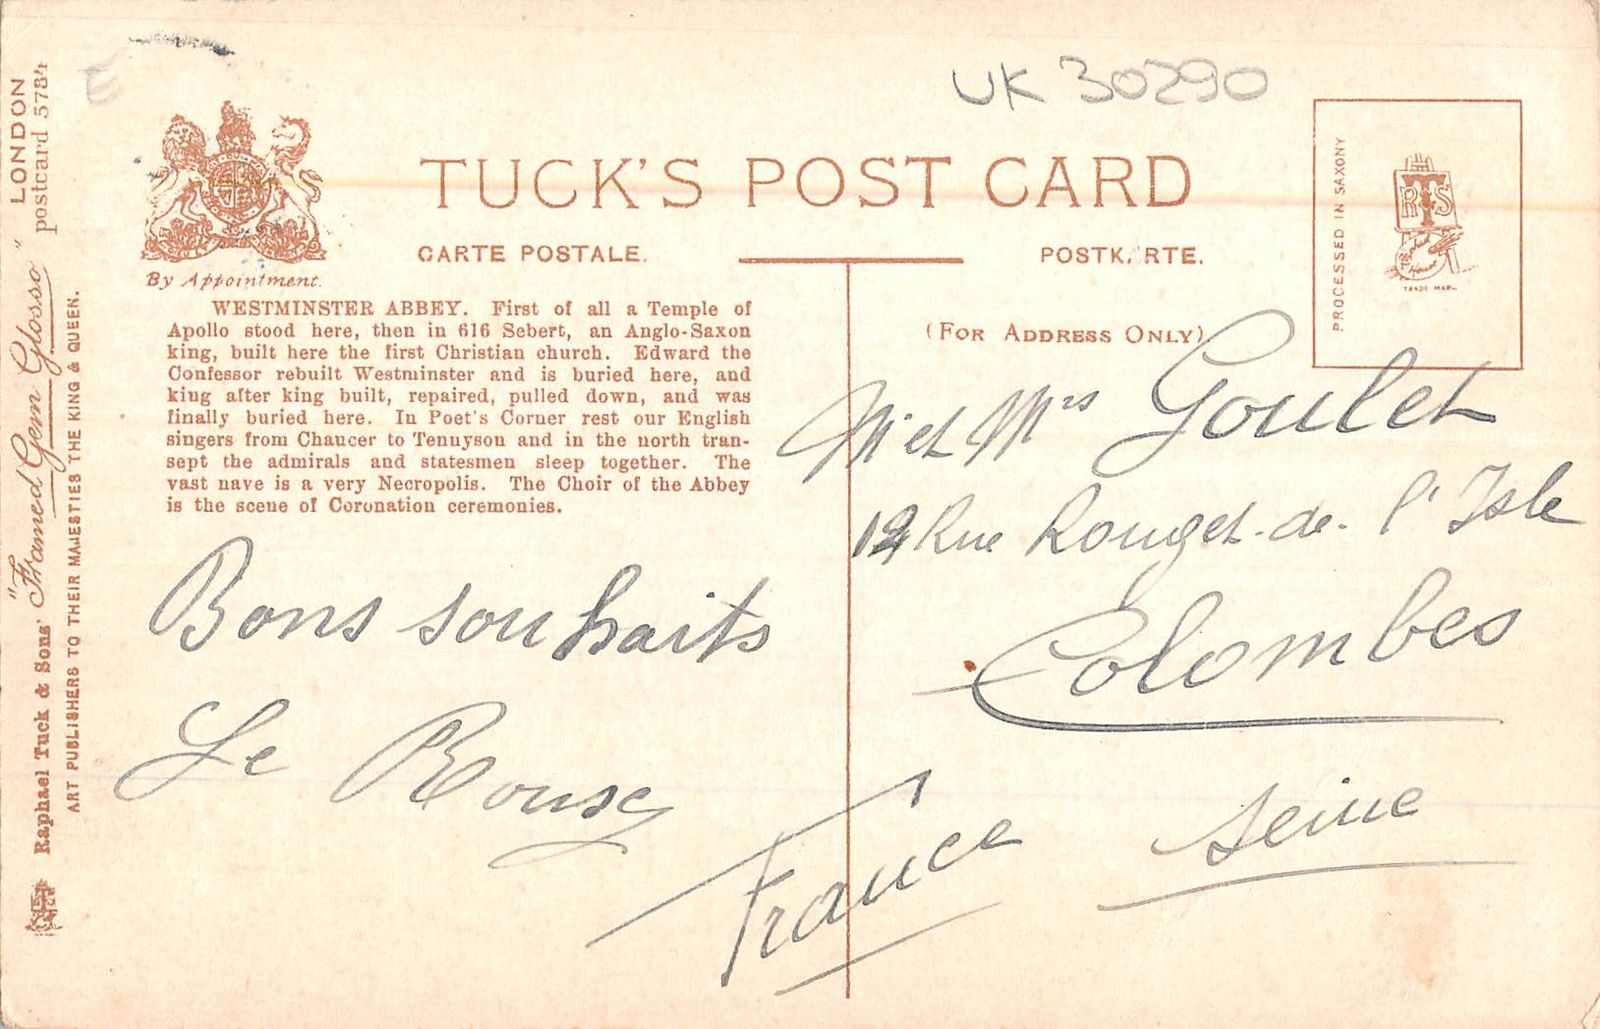 UK 30290
TUCK'S POST CARD
CARTE POSTALE.
POSTK RTE.
By Appointment.
(FOR ADDRESS ONLY)
PROCESSED IN SAXONY
RTS
Raphael
House
TRADE MAR
WESTMINSTER ABBEY. First of all a Temple of
Apollo stood here, then in 616 Sebert, an Anglo-Saxon
king, built here the first Christian church. Edward the
Confessor rebuilt Westminster and is buried here, and
king after king built, repaired, pulled down, and was
finally buried here. In Poet's Corner rest our English
singers from Chaucer to Tennyson and in the north tran-
sept the admirals and statesmen sleep together. The
vast nave is a very Necropolis. The Choir of the Abbey
is the scene of Coronation ceremonies.
Bons souhaits
Le
M et Mrs Goulet
Rue Rouget-de-l'Isle
Colombes
Seine
France
Raphael Tuck & Sons' "Framed Gem Glosso" LONDON
postcard 5784
ART PUBLISHERS TO THEIR MAJESTIES THE KING & QUEEN.